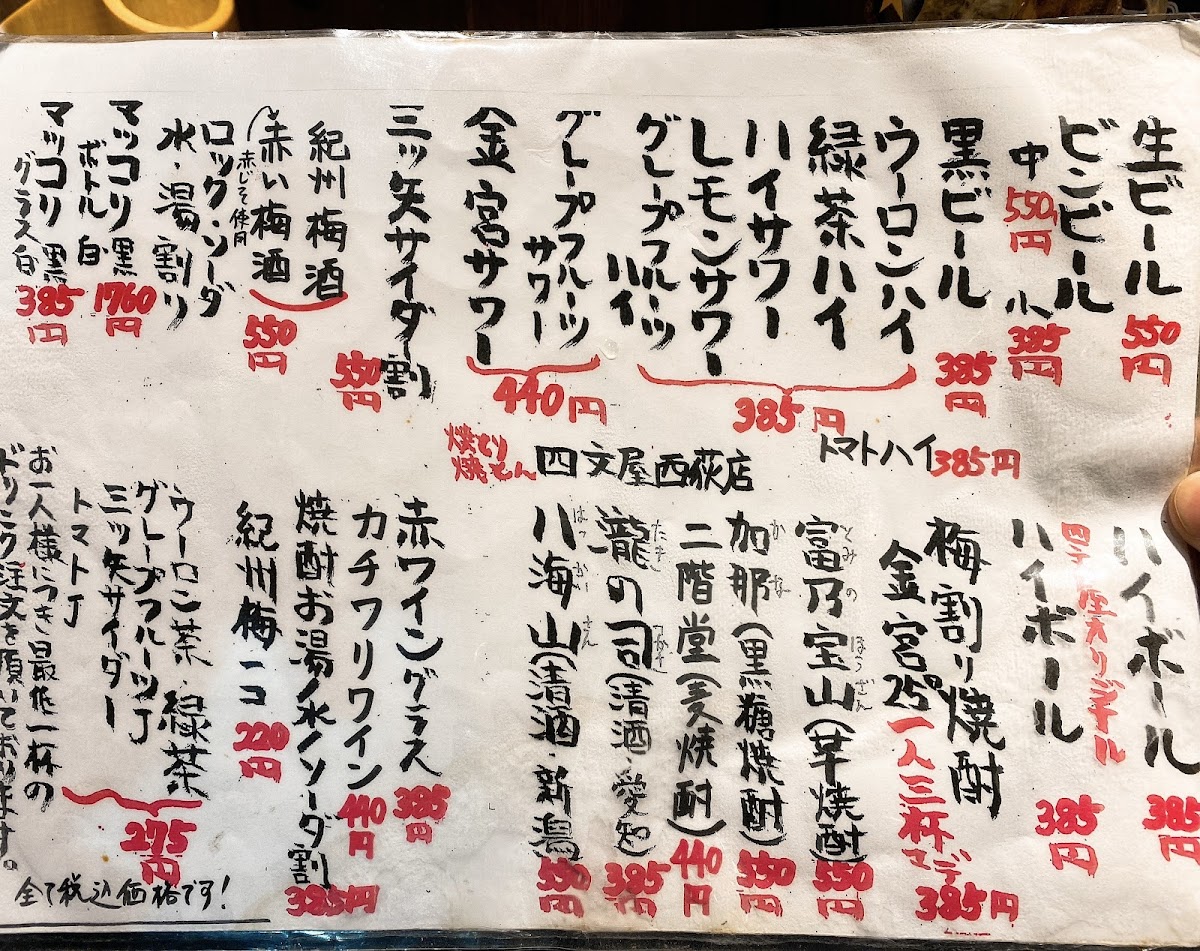 生ビール 550円
ビンビール
中 550円 小 385円
黒ビール 385円
ウーロンハイ
緑茶ハイ
ハイサワー
レモンサワー
グレープフルーツ
ハイ
385円
トマトハイ 385円
グレープフルーツ
サワー
金宮サワー
440円
三ッ矢サイダー割 550円
紀州梅酒
赤い梅酒
赤じそ使用
550円
ロック・ソーダ
水・湯割り
マッコリ黒
ボトル 白
1760円
マッコリ黒
グラス白
385円
焼とり
焼とん
四文屋西荻店
ハイボール 385円
ハイボール 385円
梅割り焼酎
金宮25°
一人三杯マデ
385円
富乃宝山(芋焼酎) 550円
とみの ほうざん
加那(黒糖焼酎) 550円
かな
二階堂(麦焼酎) 440円
瀧の司(清酒・愛知) 385円
たき つかさ
八海山(清酒・新潟 550円
はっかいさん
赤ワイングラス 385円
カチワリワイン 440円
焼酎お湯/水/ソーダ割 385円
紀州梅一コ 220円
ウーロン茶・緑茶
グレープフルーツJ
三ッ矢サイダー
トマトJ
275円
お一人様につき最低一杯の
ドリンク注文を頂いております。
全て税込価格です!